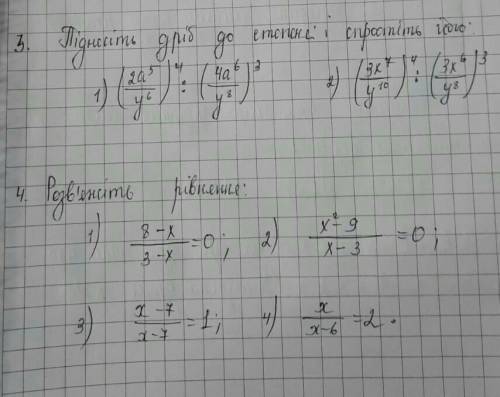 3. Підносіть дріб до степеня і спростіть його:
1) (2a⁵/y⁶)⁴ : (4a⁶/y⁸)³ 2) (3x⁷/y¹⁰)⁴ : (3x⁶/y⁸)³
4. Розв'яжіть рівняння:
1) (8-x)/(3-x) = 0; 2) (x²-9)/(x-3) = 0;
3) (x-7)/(x-7) = 1; 4) x/(x-6) = 2.